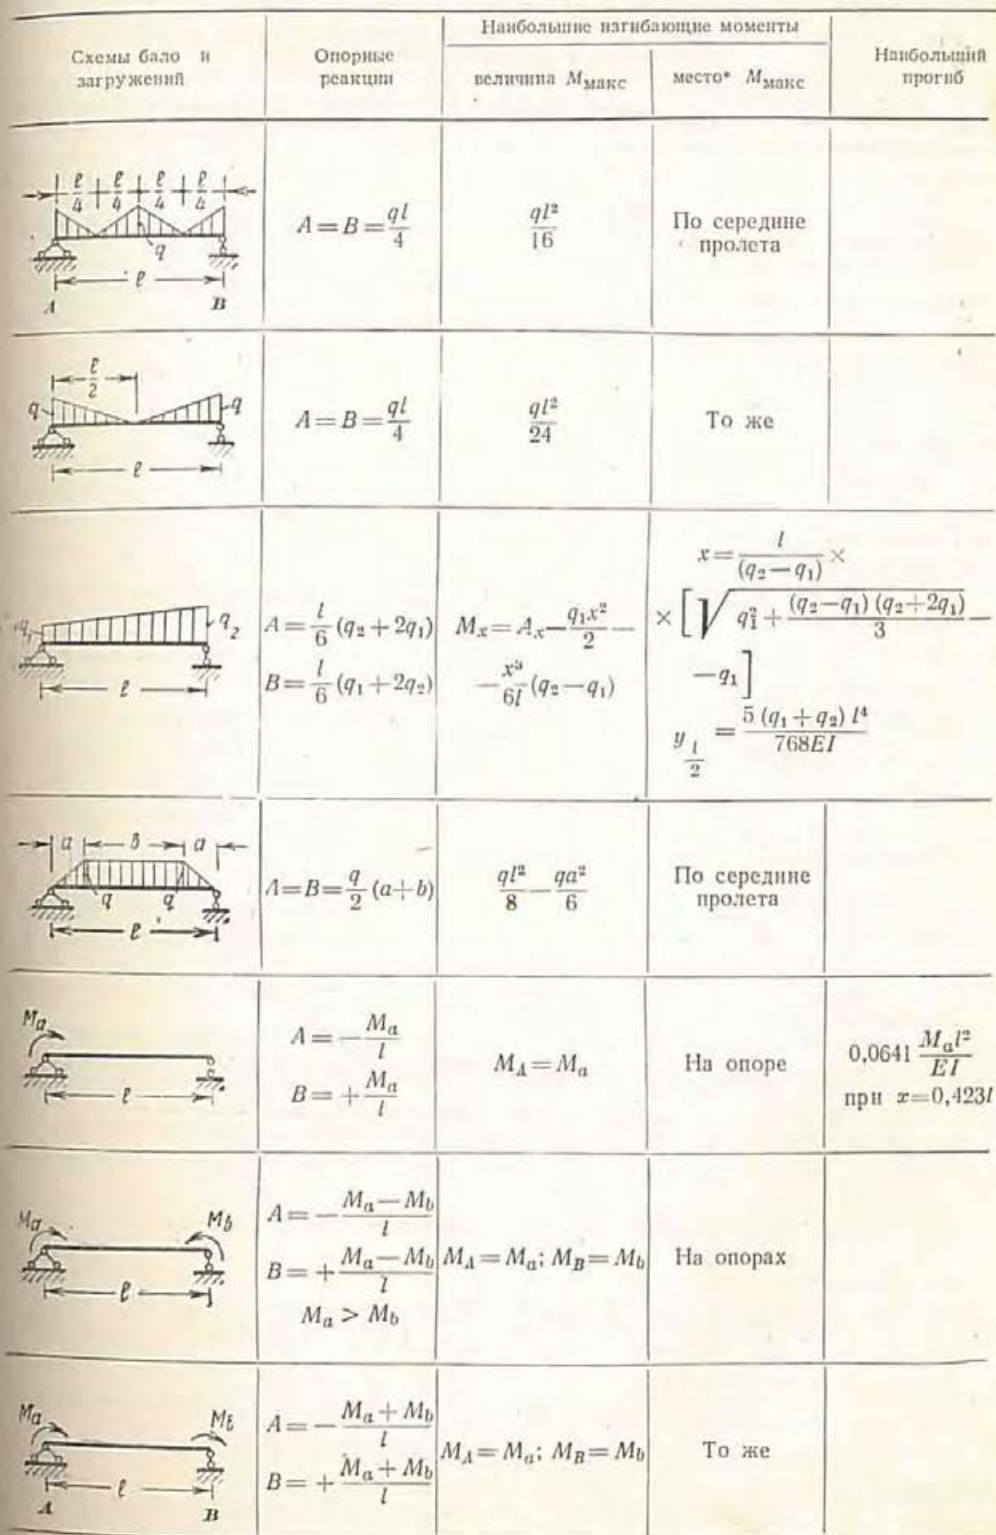 Схемы бало и загружений
Опорные реакции
Наибольшие изгибающие моменты
величина Mмакс
место* Mмакс
Наибольший прогиб
l/4 l/4 l/4 l/4
q
l
A B
A = B = ql/4
ql²/16
По середине
пролета
l/2
q q
l
A = B = ql/4
ql²/24
То же
q₁ q₂
l
A = l/6 (q₂ + 2q₁)
B = l/6 (q₁ + 2q₂)
Mₓ = Aₓ − q₁x²/2 −
− x³/6l (q₂ − q₁)
x = l/(q₂ − q₁) ×
× [√(q₁² + (q₂ − q₁) (q₂ + 2q₁)/3) −
− q₁]
y l/2 = 5 (q₁ + q₂) l⁴/768EI
a в a
q q
l
A = B = q/2 (a + b)
ql²/8 − qa²/6
По середине
пролета
Ma
l
A = − Ma/l
B = + Ma/l
MA = Ma
На опоре
0,0641 Mal²/EI
при x = 0,423l
Ma Mb
l
A = − Ma − Mb/l
B = + Ma − Mb/l
Ma > Mb
MA = Ma; MB = Mb
На опорах
Ma Mв
l
A B
A = − Ma + Mb/l
B = + Ma + Mb/l
MA = Ma; MB = Mb
То же